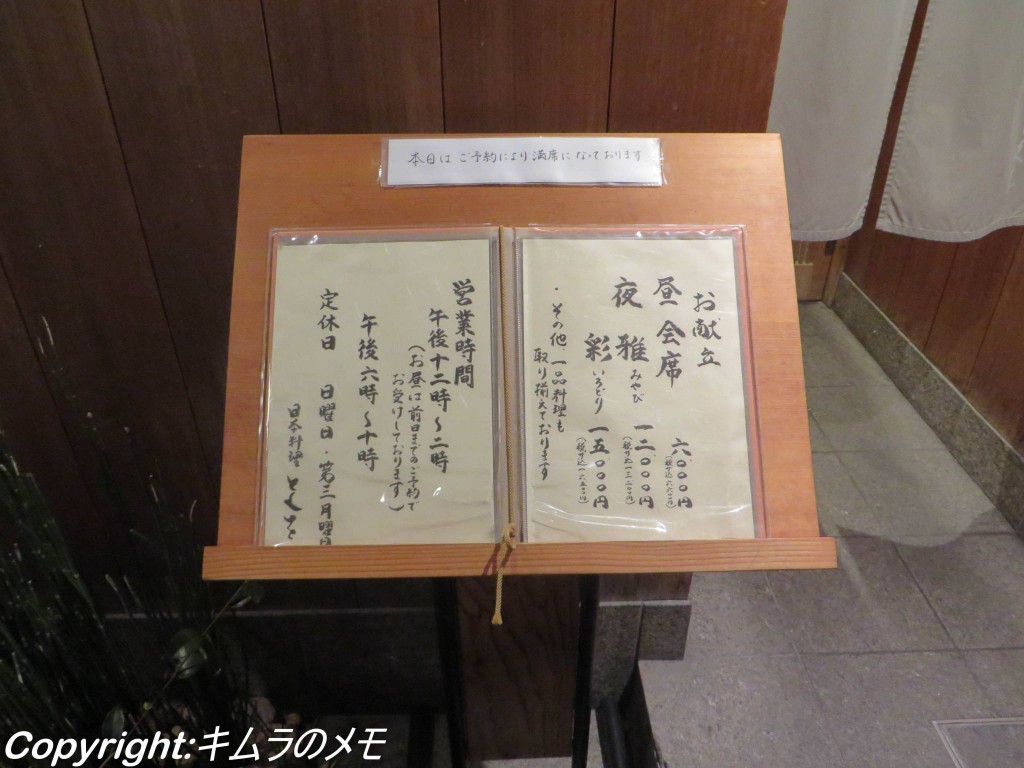 本日は ご予約により 満席に なっております
お献立
昼 会席 六〇〇〇円
(税サ込 六六〇〇円)
夜 雅 みやび 一二〇〇〇円
(税サ込 一三二〇〇円)
彩 いろどり 一五〇〇〇円
(税サ込 一六五〇〇円)
・その他、一品料理も
取り揃えております
営業時間
午後十二時〜二時
(お昼は前日までのご予約で
お受けしております)
午後六時〜十時
定休日 日曜日・第三月曜日
日本料理
Copyright:キムラのメモ